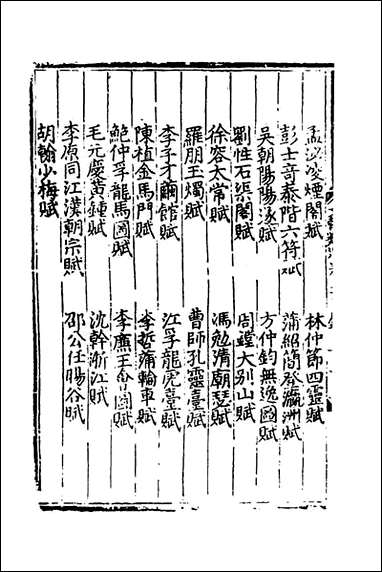 孟泌凌煙閣賦　林仲節四靈賦
彭士奇泰階六符賦　蒲紹簡登瀛洲賦
吳朝陽陽遂賦　方仲鈞無逸圖賦
劉性石渠閣賦　周鏜大別山賦
徐容太常賦　馮勉清廟瑟賦
羅朋玉燭賦　曹師孔靈臺賦
李子才繭館賦　江孚龍虎臺賦
陳植金馬門賦　李哲蒲輪車賦
鮑仲孚龍馬圖賦　李廉王會圖賦
毛元慶黃鍾賦　沈幹浙江賦
李原同江漢朝宗賦　邵公任暘谷賦
胡翰少梅賦